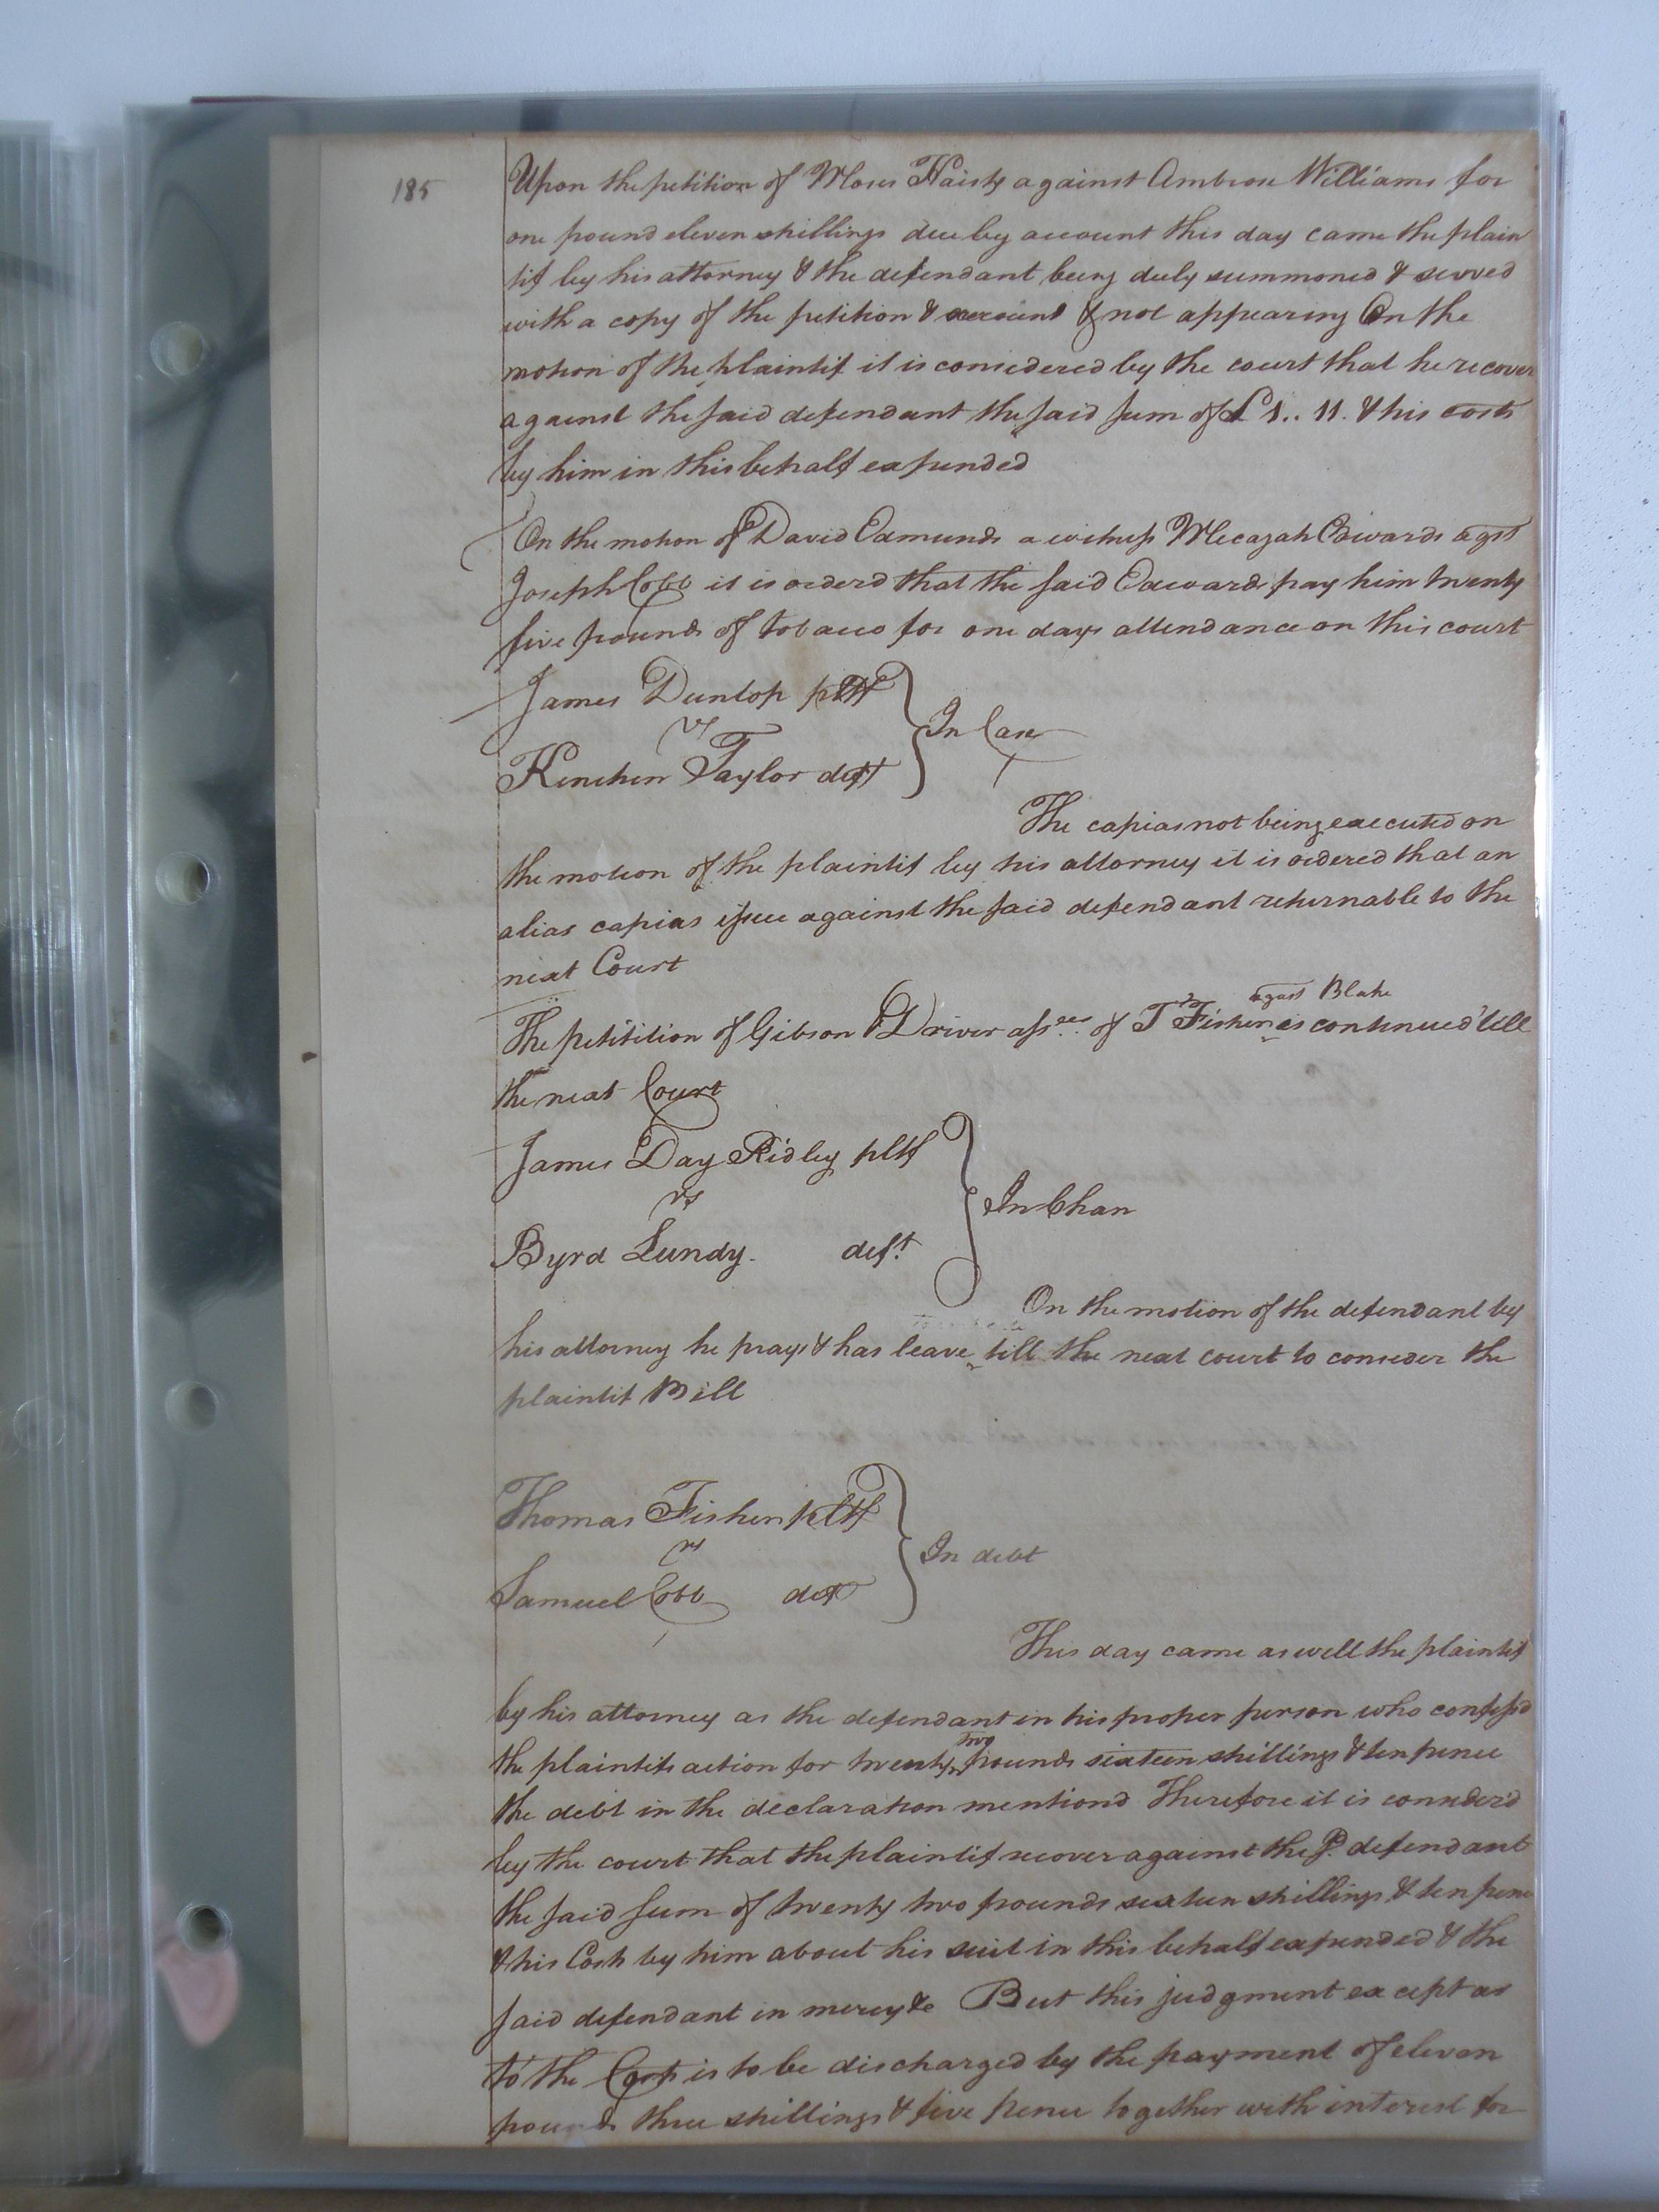 185
Upon the petition of Moses Haisty against Ambrose Williams for
one pound eleven shillings due by account this day came the plain
tif by his attorney & the defendant being duly summoned & served
with a copy of the petition & account & not appearing On the
motion of the plaintif it is considered by the court that he recover
against the said defendant the said sum of £1..11. & his costs
by him in this behalf expended
On the motion of David Edmunds a witness Mecazah Edwards agst
Joseph Cobb it is orderd that the said Edwards pay him twenty
five pounds of tobacco for one days attendance on this court
James Dunlop pltff
vs
Kinchen Taylor deft
In Case
The capias not being executed on
the motion of the plaintif by his attorney it is ordered that an
alias capias issue against the said defendant returnable to the
next Court
agast Blake
The petitition of Gibson & Driver assees of T Fisher is continued till
the next Court
James Day Ridley pltf
vs
Byrd Lundy. deft
In Chan
On the motion of the defendant by
his attorney he prays & has leave till the next court to consider the
plaintif Bill
Thomas Fisher pltff
vs
Samuel Cobb deft
In debt
This day came as well the plaintif
by his attorney as the defendant in his proper person who confess'd
two
the plaintifs action for twenty pounds sixteen shillings & ten pence
the debt in the declaration mentiond Therefore it is considerd
by the court that the plaintif recover against the sd. defendant
the said sum of twenty two pounds sixteen shillings & ten pence
& his Costs by him about his suit in this behalf expended & the
said defendant in mercy &c But this judgment except as
to the Costs is to be discharged by the payment of eleven
pounds three shillings & five pence together with interest for